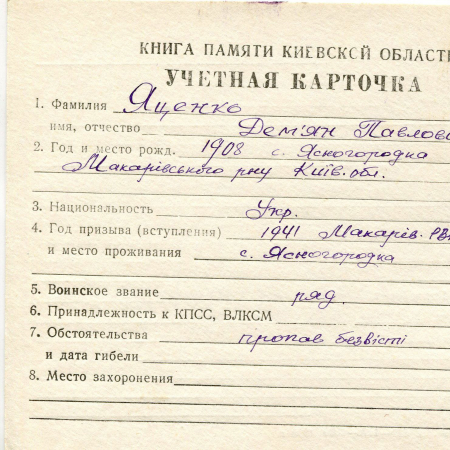 КНИГА ПАМЯТИ КИЕВСКОЙ ОБЛАСТ
УЧЕТНАЯ КАРТОЧКА
1. Фамилия Яценко
имя, отчество Дем'ян Павлов
2. Год и место рожд. 1908 с. Ясногородка
Макарівського р-ну Київ. обл.
3. Национальность Укр.
4. Год призыва (вступления) 1941 Макарів. РВ
и место проживания с. Ясногородка
5. Воинское звание ряд.
6. Принадлежность к КПСС, ВЛКСМ
7. Обстоятельства пропав безвісті
и дата гибели
8. Место захоронения